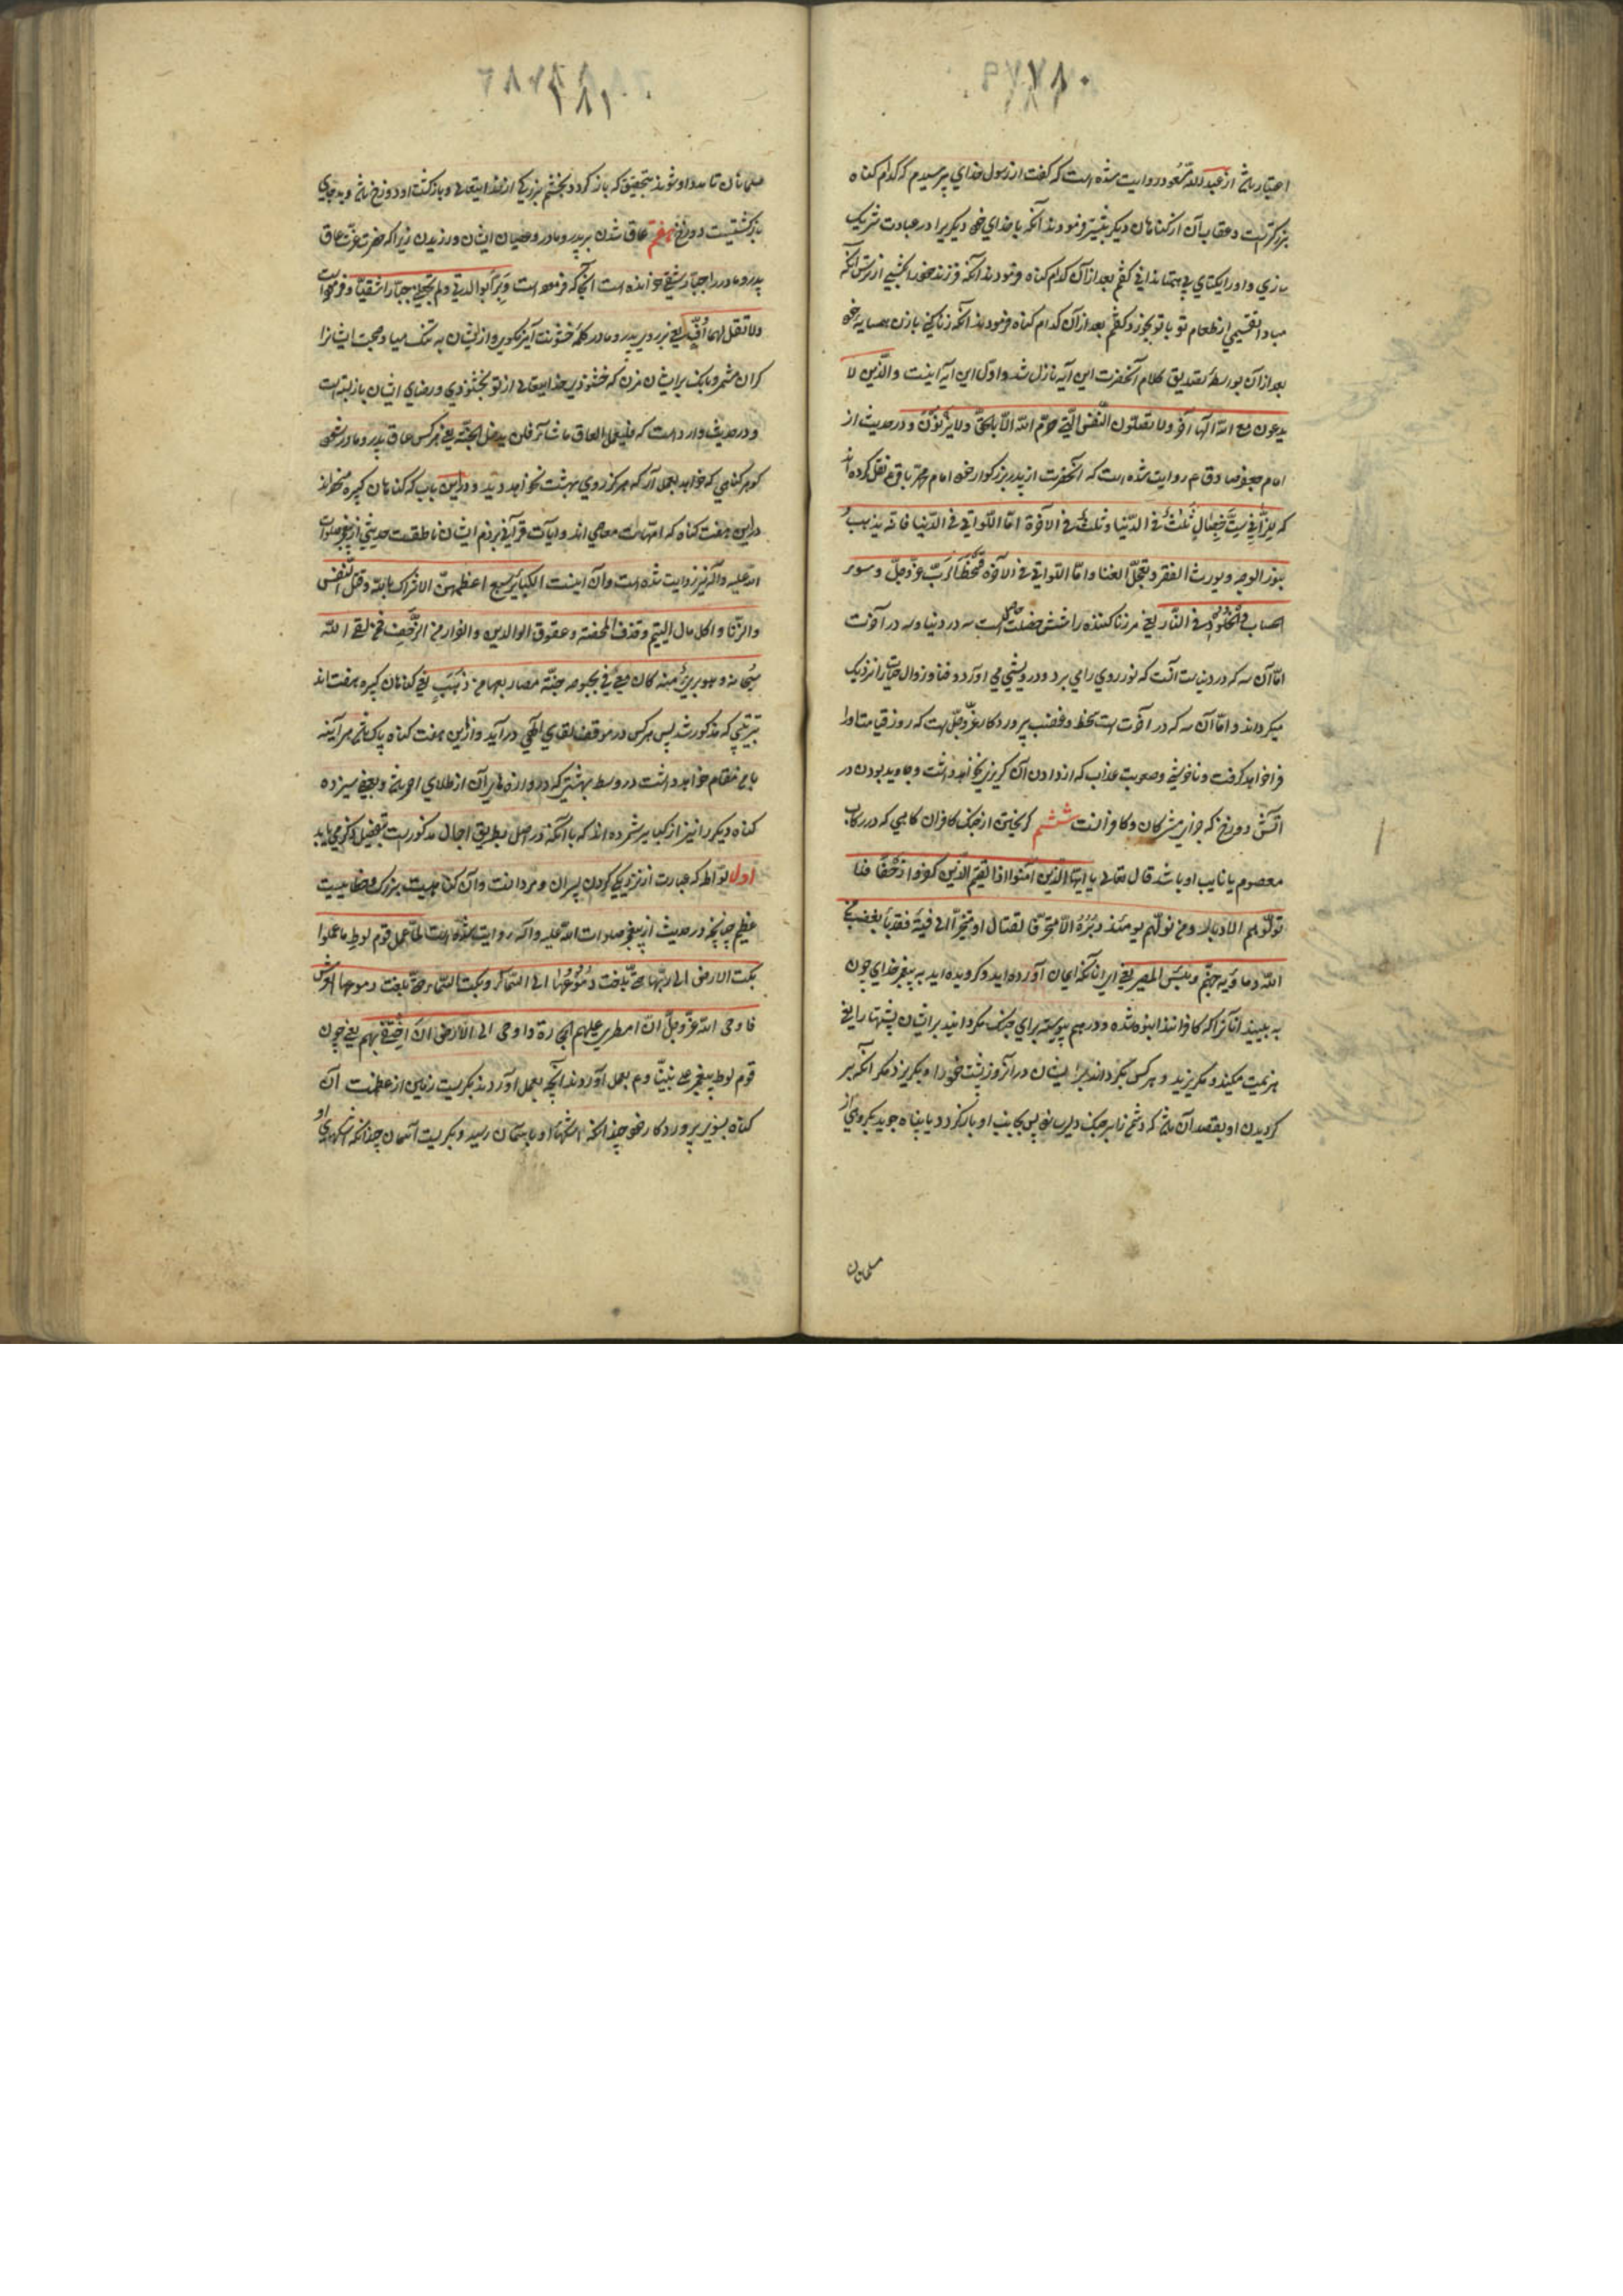 ۱۸۰
اختیار باشد از عبدالله مسعود روایت شده است که گفت از رسول خدای پرسیدم که کدام کناه
بزرکتر است و عقاب آن از کناهان دیکر بیشتر فرمودند آنکه با خدای خود دیکریرا در عبادت شریک
سازی و او را یکتای بی همتا ندانی کفتم بعد از آن کدام کناه فرمودند آنکه فرزند خود را بکشی از ترس آنکه
مبادا تقسیمی از طعام تو با تو بخورد کفتم بعد از آن کدام کناه فرمودند آنکه زنا کنی با زن همسایه خود
بعد از آن بواسطه تصدیق کلام آنحضرت این آیه نازل شد و اول این آیه اینست والّذین لا
یدعون مع الله الها آخر ولا یقتلون النّفس الّتی حرّم الله الّا بالحقّ ولا یزنون و در حدیث از
امام جعفر صادق ع روایت شده است که آنحضرت از پدر بزرکوار خود امام محمد باقر ع نقل کرده اند
که للزّانی ستّ خصال ثلث فی الدّنیا و ثلث فی الآخرة امّا اللّواتی فی الدّنیا فانّه یذهب
بنور الوجه و یورث الفقر و یعجّل الفنا و امّا اللّواتی فی الآخرة فسخط الرّبّ عزّ وجلّ و سوء
الحساب والخلود فی النّار یعنی مر زنا کننده را شش خصلت حاصل است سه در دنیا و سه در آخرت
امّا آن سه که در دنیاست آنست که نور روی را می برد و درویشی می آورد و فنا و زوال حیات را نزدیک
میکرداند و امّا آن سه که در آخرت است سخط و غضب پروردکار عزّ وجلّ است که روز قیامت او را
فرا خواهد کرفت و ناخوشی و صعوبت عذاب که از دادن آن کریزی نخواهد داشت و جاوید بودن در
آتش دوزخ که جزای مشرکان و کافرانست ششم کریختن از جنک کافران کاهی که در رکاب
معصوم یا نایب او باشد قال تعالی یا ایها الّذین آمنوا اذا لقیتم الّذین کفروا زحفا فلا
تولّوهم الادبار و من یولّهم یومئذ دبره الّا متحرّفا لقتال او متحیّزا الی فیة فقد باء بغضب من
الله و ماویه جهنّم و بئس المصیر یعنی ای آنانکه ایمان آورده اید و کرویده اید به پیغمبر خدای چون
به بینید آنانرا که کافرانند انبوه شده و در هم پیوسته برای جنک مکردانید بر ایشان پشتها را یعنی
هزیمت مکنید و مکریزید و هر کس بکرداند بر ایشان در آنروز پشت خود را و بکریزد مکر آنکه بر
کردیدن او بقصد آن باشد که دشمن را بر جنک دلیر سازد پس بجانب او باز کردد یا پناه جوید بکروهی از
مسلمانان
۱۸۱
مسلمانان تا مدد او شوند بتحقیق که باز کردد بخشم بزرکی از خدایتعالی و بازکشت او دوزخ باشد و بد جای
بازکشتیست دوزخ هفتم عاق شدن بر پدر و مادر و عصیان ایشان ورزیدن زیرا که حضرت عزّت عاق
پدر و مادر را جبّار شقی خوانده است آنجا که فرموده است و برّا بوالدتی و لم یجعلنی جبّارا شقیّا و فرموده است
ولا تقل لهما افّ یعنی بر روی پدر و مادر کلمه خشونت آمیز مکوی و از ایشان به تنک میا و صحبت ایشانرا
کران مشمر و بانک بر ایشان مزن که خشنودی خدایتعالی از تو بخشنودی و رضای ایشان باز بسته است
و در حدیث وارد است که فلیعمل العاق ما شاء فلن یدخل الجنّة یعنی هر کس عاق پدر و مادر شود
کو هر کناهی که خواهد بعمل آر که هرکز روی بهشت نخواهد دید و در این باب که کناهان کبیره منحصراند
در این هفت کناه که امّهات معاصی اند و آیات قرآنی بر ذم ایشان ناطقست حدیثی از پیغمبر صلوات
الله علیه و آله نیز روایت شده است و آن اینست الکبایر سبع اعظمهنّ الاشراک بالله و قتل النّفس
والزّنا و اکل مال الیتیم و قذف المحصنة و عقوق الوالدین والفرار من الزّحف فمن لقی الله
سبحانه و هو بریء منهنّ کان معی فی بحبوحة جنّة مصاریعها من ذهب یعنی کناهان کبیره هفت اند
بترتیبی که مذکور شد پس هر کس در موقف لقای الهی درآید و ازین هفت کناه پاک باشد هر آینه
با من مقام خواهد داشت در وسط بهشتی که دروازه های آن از طلای احمر باشد و بعضی سیزده
کناه دیکر را نیز از کبایر شمرده اند که با آنکه در اصل بطریق اجمال مذکور است بتفصیل ذکر می یابد
اول لواطه که عبارت از نزدیکی کردن پسران و مردانست و آن کناهیست بزرک و خطاییست
عظیم چنانچه در حدیث از پیغمبر صلوات الله علیه و آله روایت شده است لمّا عمل قوم لوط ما عملوا
بکت الارض الی ربّها حتّی بلغت دموعها الی السّماء و بکت السّماء حتّی بلغت دموعها العرش
فاوحی الله عزّ وجلّ الی السّماء ان امطری علیهم الحجارة و اوحی الی الارض ان اخسفی بهم یعنی چون
قوم لوط پیغمبر علی نبیّنا و ع بعمل آوردند آنچه بعمل آوردند بکریست زمین از عظمت آن
کناه بسوی پروردکار خود چندانکه اشکهای او باسمان رسید و بکریست آسمان چندانکه اشکهای او